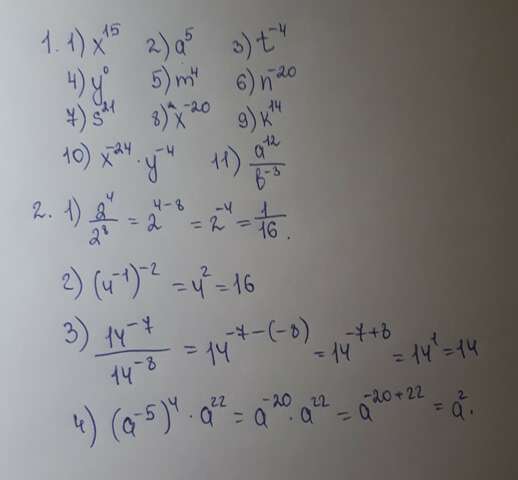 1. 1) x^15 2) a^5 3) t^-4
4) y^0 5) m^4 6) n^-20
7) s^21 8) x^-20 9) k^14
10) x^-24 · y^-4 11) a^12/b^-3
2. 1) 2^4/2^8 = 2^4-8 = 2^-4 = 1/16.
2) (4^-1)^-2 = 4^2 = 16
3) 14^-7/14^-8 = 14^-7-(-8) = 14^-7+8 = 14^1 = 14
4) (a^-5)^4 · a^22 = a^-20 · a^22 = a^-20+22 = a^2.